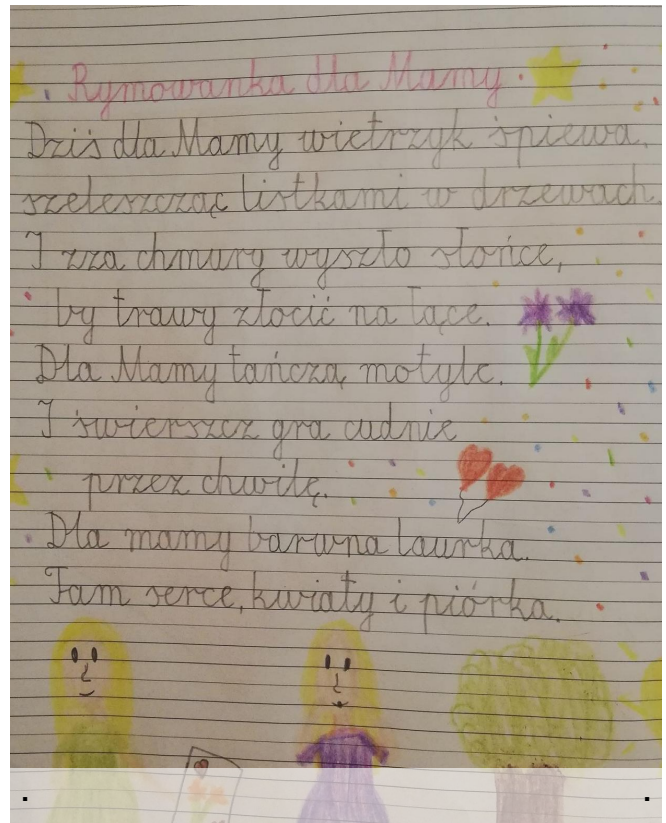 Rymowanka dla Mamy
Dziś dla Mamy wietrzyk śpiewa,
szeleszcząc listkami w drzewach.
I zza chmury wyszło słońce,
by trawy złocić na łące.
Dla Mamy tańczą motyle.
I świerszcz gra cudnie
przez chwilę.
Dla mamy barwna laurka.
Tam serce, kwiaty i piórka.